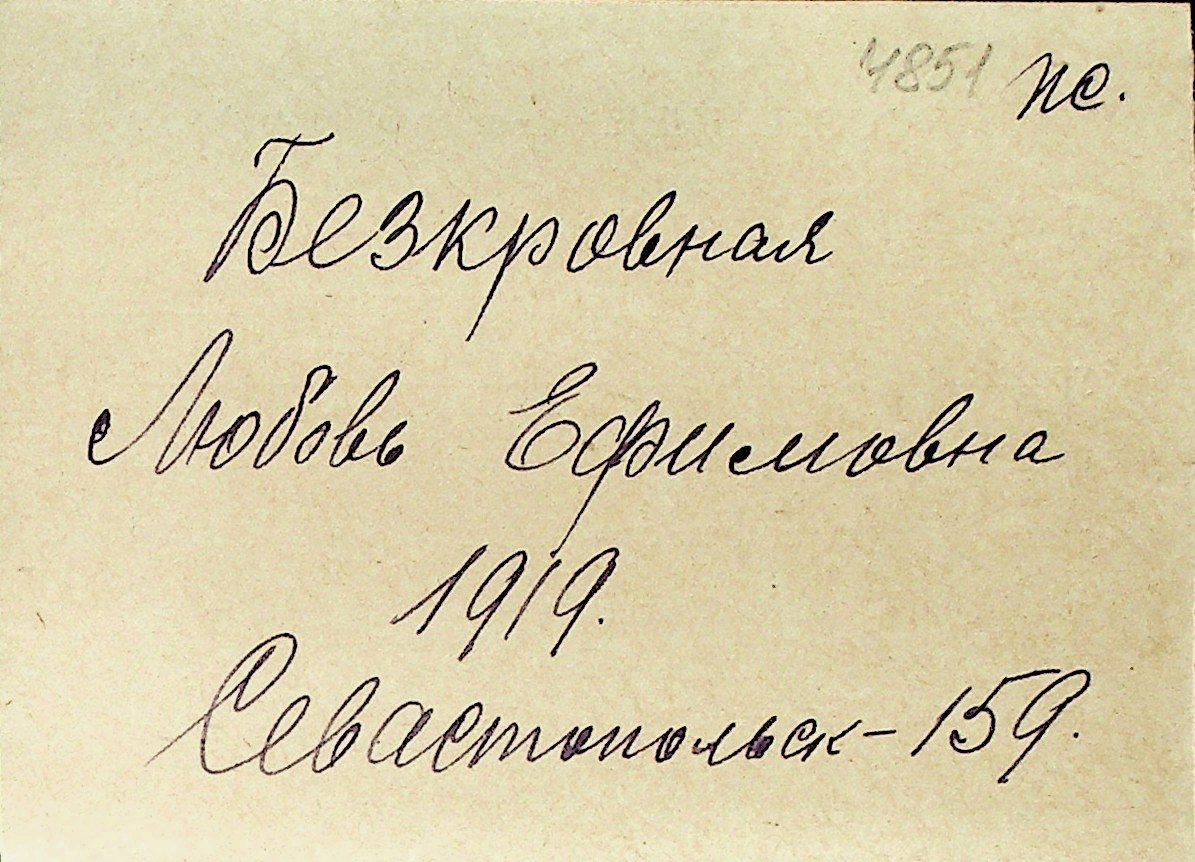 4851 пс.
Безкровная
Любовь Ефимовна
1919.
Севастопольск-159.